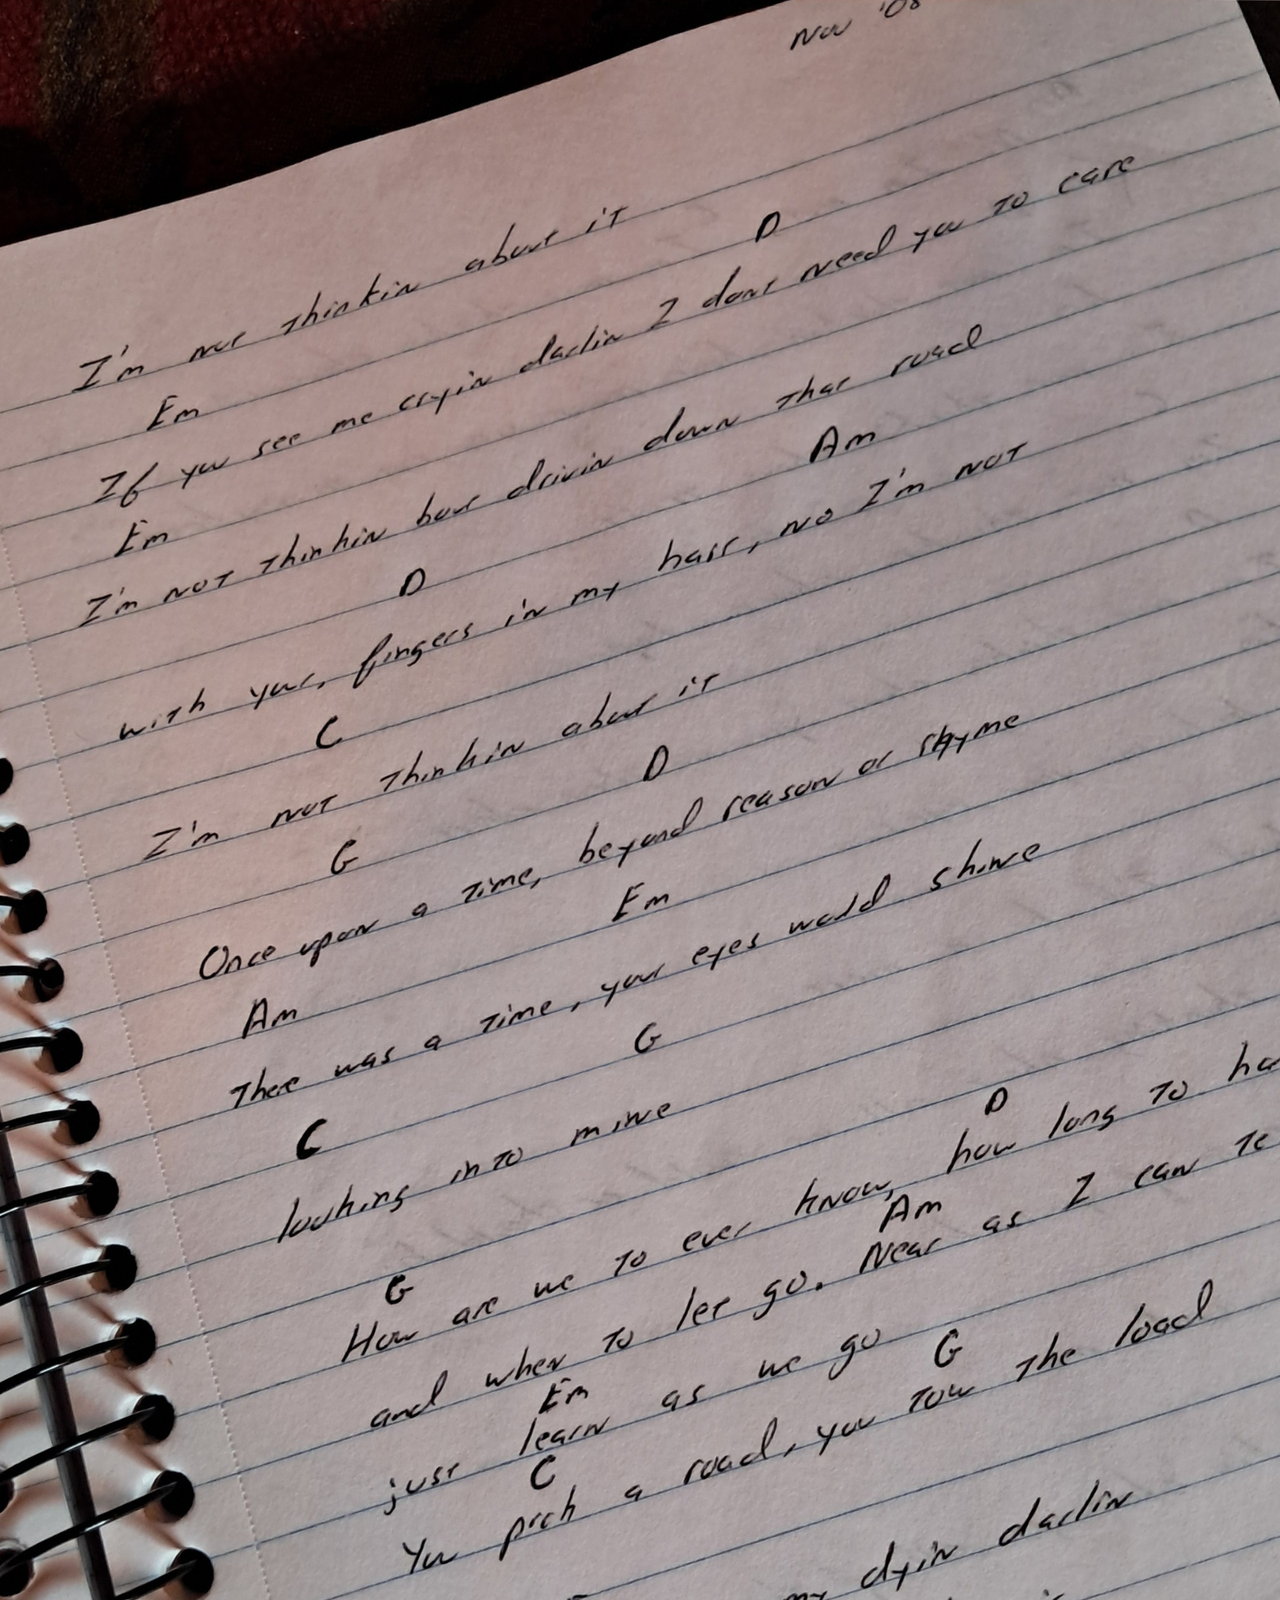 Nov '08
I'm not thinkin about it
Em D
If you see me cryin darlin I dont need you to care
Em
I'm not thinkin bout drivin down that road
D Am
with your, fingers in my hair, no I'm not
C
I'm not thinkin about it
G D
Once upon a time, beyond reason or rhyme
Am Em
There was a time, your eyes would shine
C G
looking into mine
G D
How are we to ever know, how long to
Am
and when to let go. Near as I can
Em
just learn as we go
C G
You pick a road, you tow the load
my dyin darlin